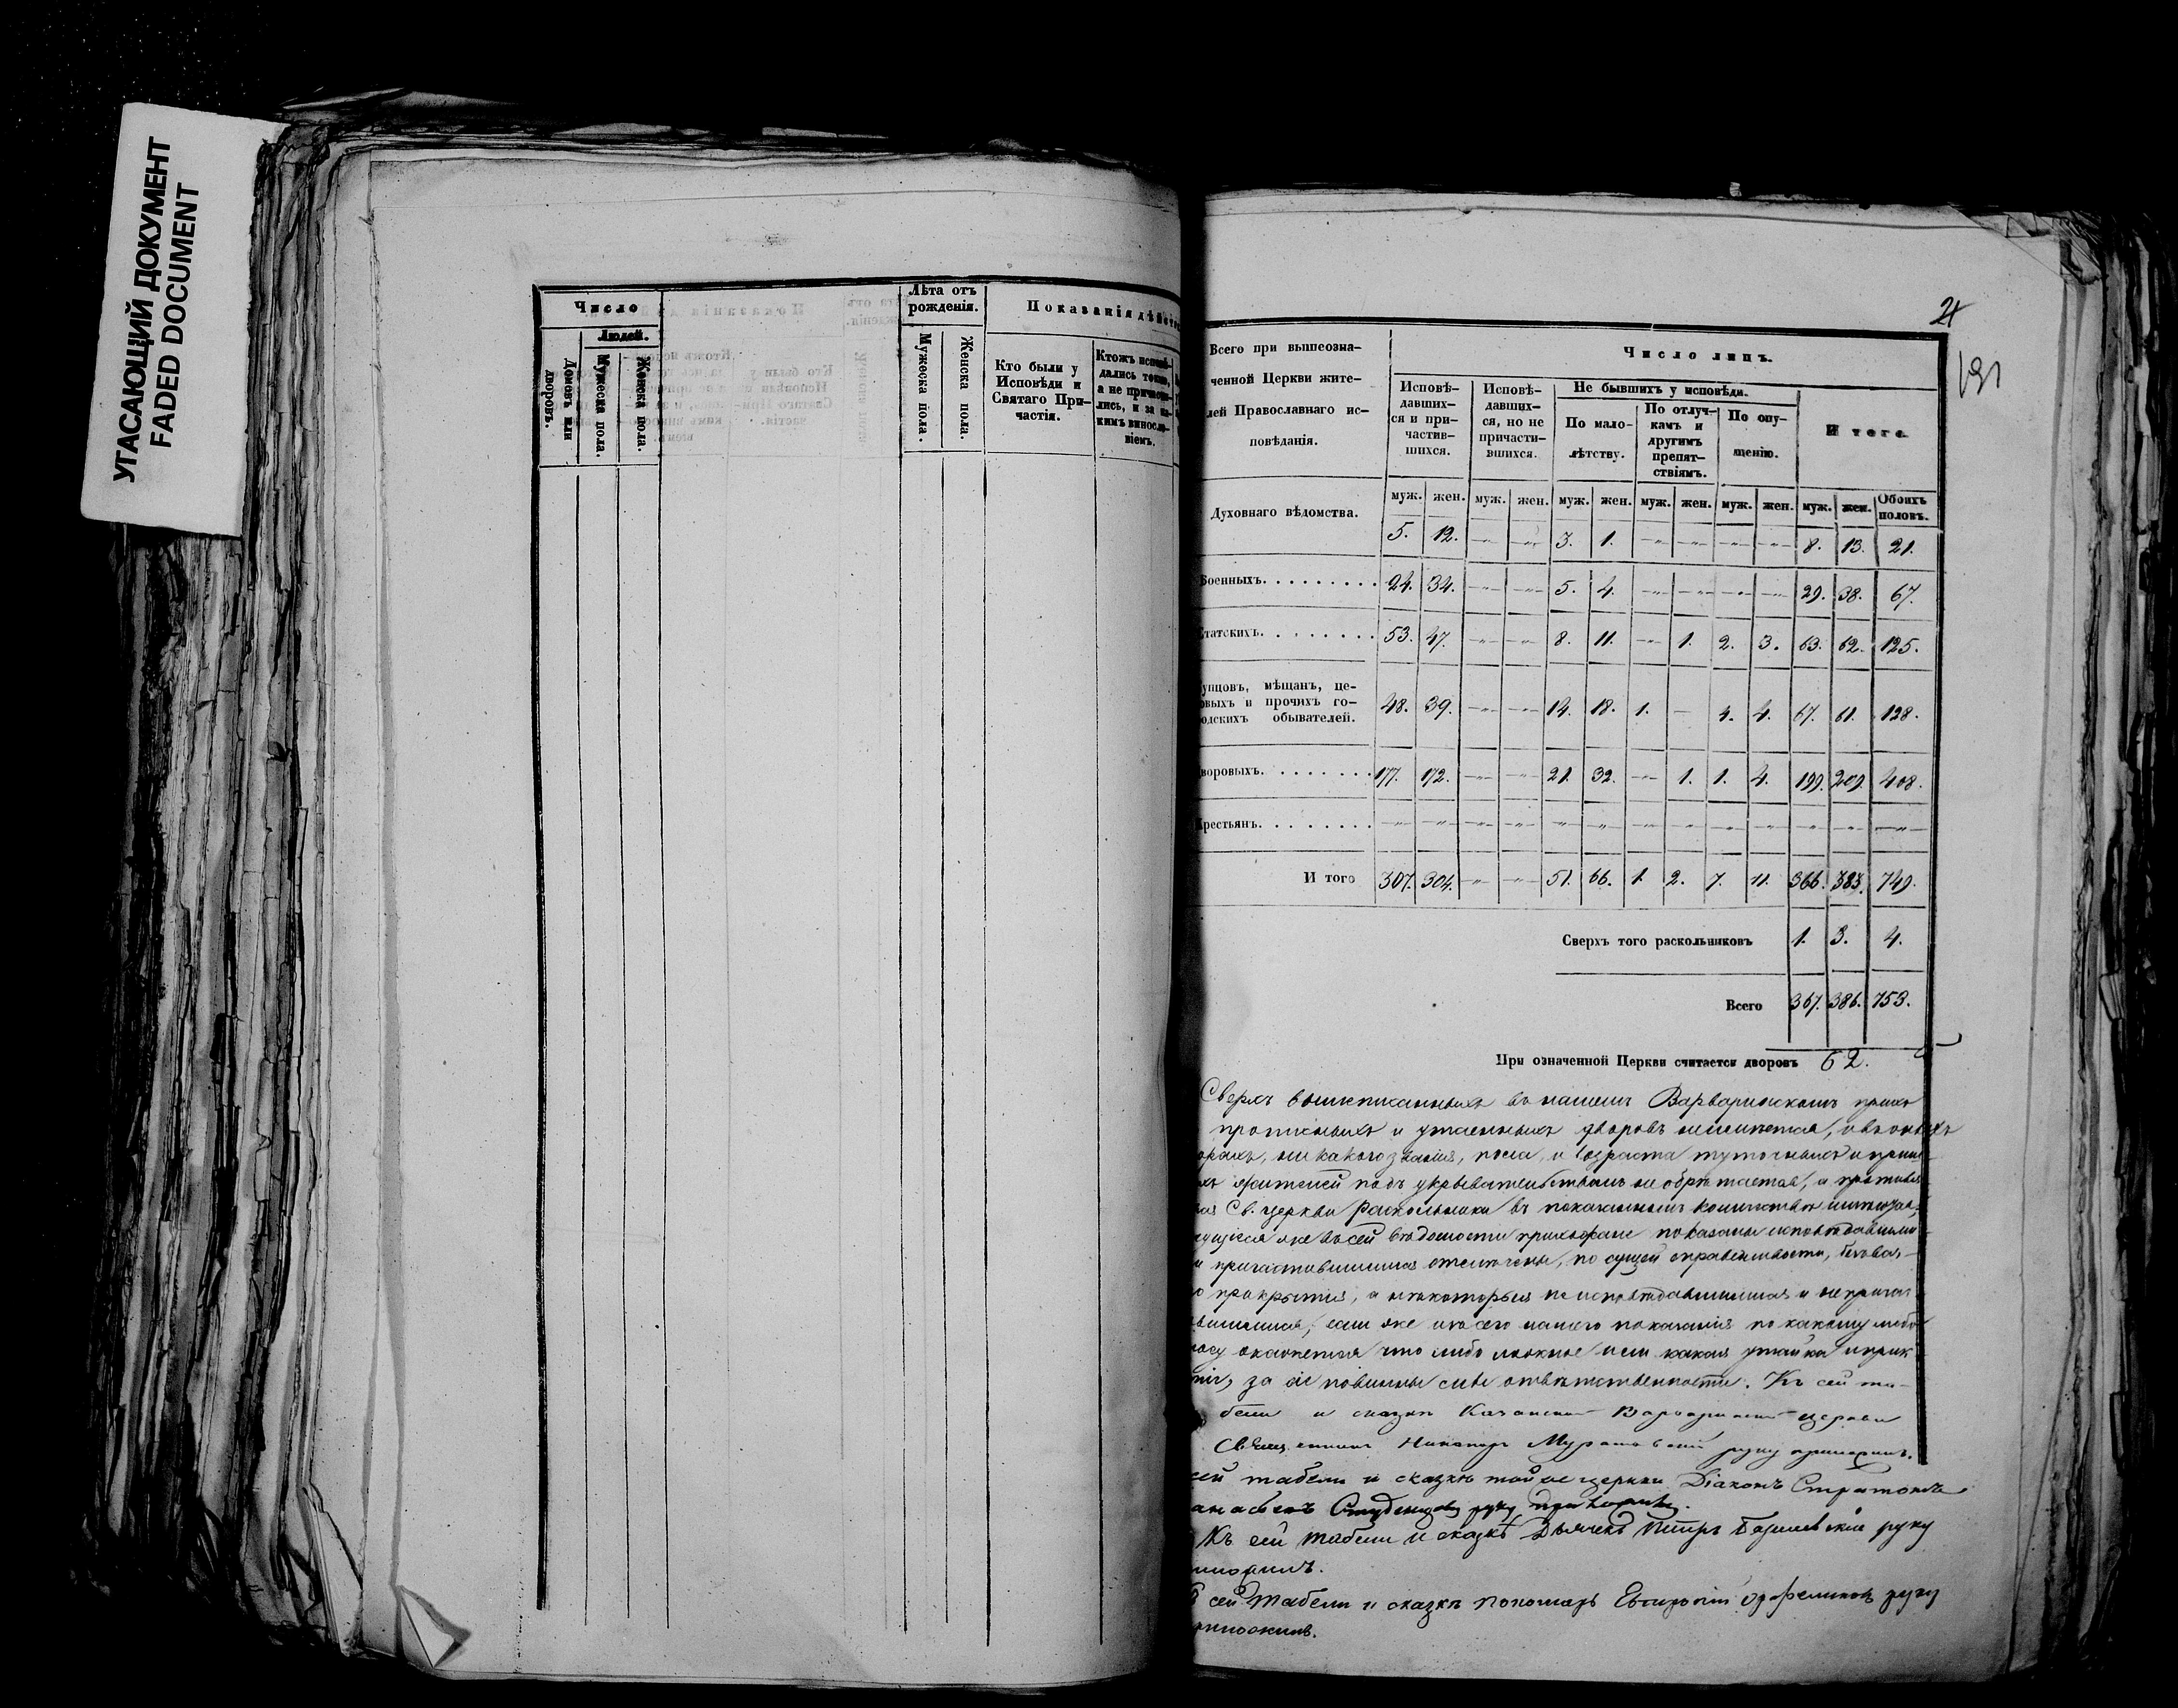 УГАСАЮЩИЙ ДОКУМЕНТ
FADED DOCUMENT
Число
Людей.
Домовъ или дворовъ.
Мужеска пола.
Женска пола.
Лѣта отъ рожденія.
Мужеска пола.
Женска пола.
Показанія дѣйст
Кто были у
Исповѣди и
Святаго При-
частія.
Ктожъ исповѣ-
дались токмо,
а не причасти-
лись, и за ка-
кимъ винос
ніемъ.
21
191
Всего при вышеозна-
ченной Церкви жите-
лей Православнаго ис-
повѣданія.
Число лицъ.
Исповѣ-
давших-
ся и при-
частив-
шихся.
Исповѣ-
давших-
ся, но не
причасти-
вшихся.
Не бывшихъ у исповѣди.
По мало-
лѣтству.
По отлуч-
камъ и
другимъ
препят-
ствіямъ.
По опу-
щенію.
И того.
муж. жен. муж. жен. муж. жен. муж. жен. муж. жен. муж. жен. Обоихъ половъ.
Духовнаго вѣдомства. 5. 12. — — 3. 1. — — — — 8. 13. 21.
Военныхъ. 24. 34. — — 5. 4. — — — — 29. 38. 67.
Статскихъ. 53. 47. — — 8. 11. — 1. 2. 3. 63. 62. 125.
упцовъ, мѣщанъ, це-
овыхъ и прочихъ го-
одскихъ обывателей. 48. 39. — — 14. 18. 1. — 4. 4. 67. 61. 128.
воровыхъ. 177. 172. — — 21. 32. — 1. 1. 4. 199. 209. 408.
Крестьянъ. — — — — — — — — — — — — —
И того 307. 304. — — 51. 66. 1. 2. 7. 11. 366. 383. 749.
Сверхъ того раскольниковъ 1. 3. 4.
Всего 367. 386. 753.
При означенной Церкви считается дворовъ 62.
Сверхъ вышеписанныхъ въ нашемъ Варваринскомъ прихо
прописныхъ и утаенныхъ дворовъ не имѣется, и въ оныхъ
орахъ, никакого званія, пола, и возраста туточныхъ и приш
хъ жителей подъ укрывательствомъ не обрѣтается, а против
Св. церкви раскольники въ показанномъ количествѣ
ющіеся же въ сей вѣдомости прихожане показаны исповѣдавшими
и причастившимися отмѣчены, по сущей справедливости, безъ вся-
о прикрытія, а нѣкоторыя не исповѣдавшимися и не причас
вшимися; если же изъ сего нашего показанія по какому либо
осу окажется что либо ложное или какая утайка и прик
тіе, за сіе повинны себѣ отвѣтственности. Къ сей та-
бели и сказкѣ Казанской Варваринской церкви
Священникъ Никаноръ Муратовскій руку приложилъ.
сей табели и сказкѣ той же церкви Діаконъ Стратонъ
Студенцовъ руку приложилъ.
Къ сей табели и сказкѣ Дьячекъ Петръ руку
приложилъ.
сей табели и сказкѣ пономарь руку
приложилъ.